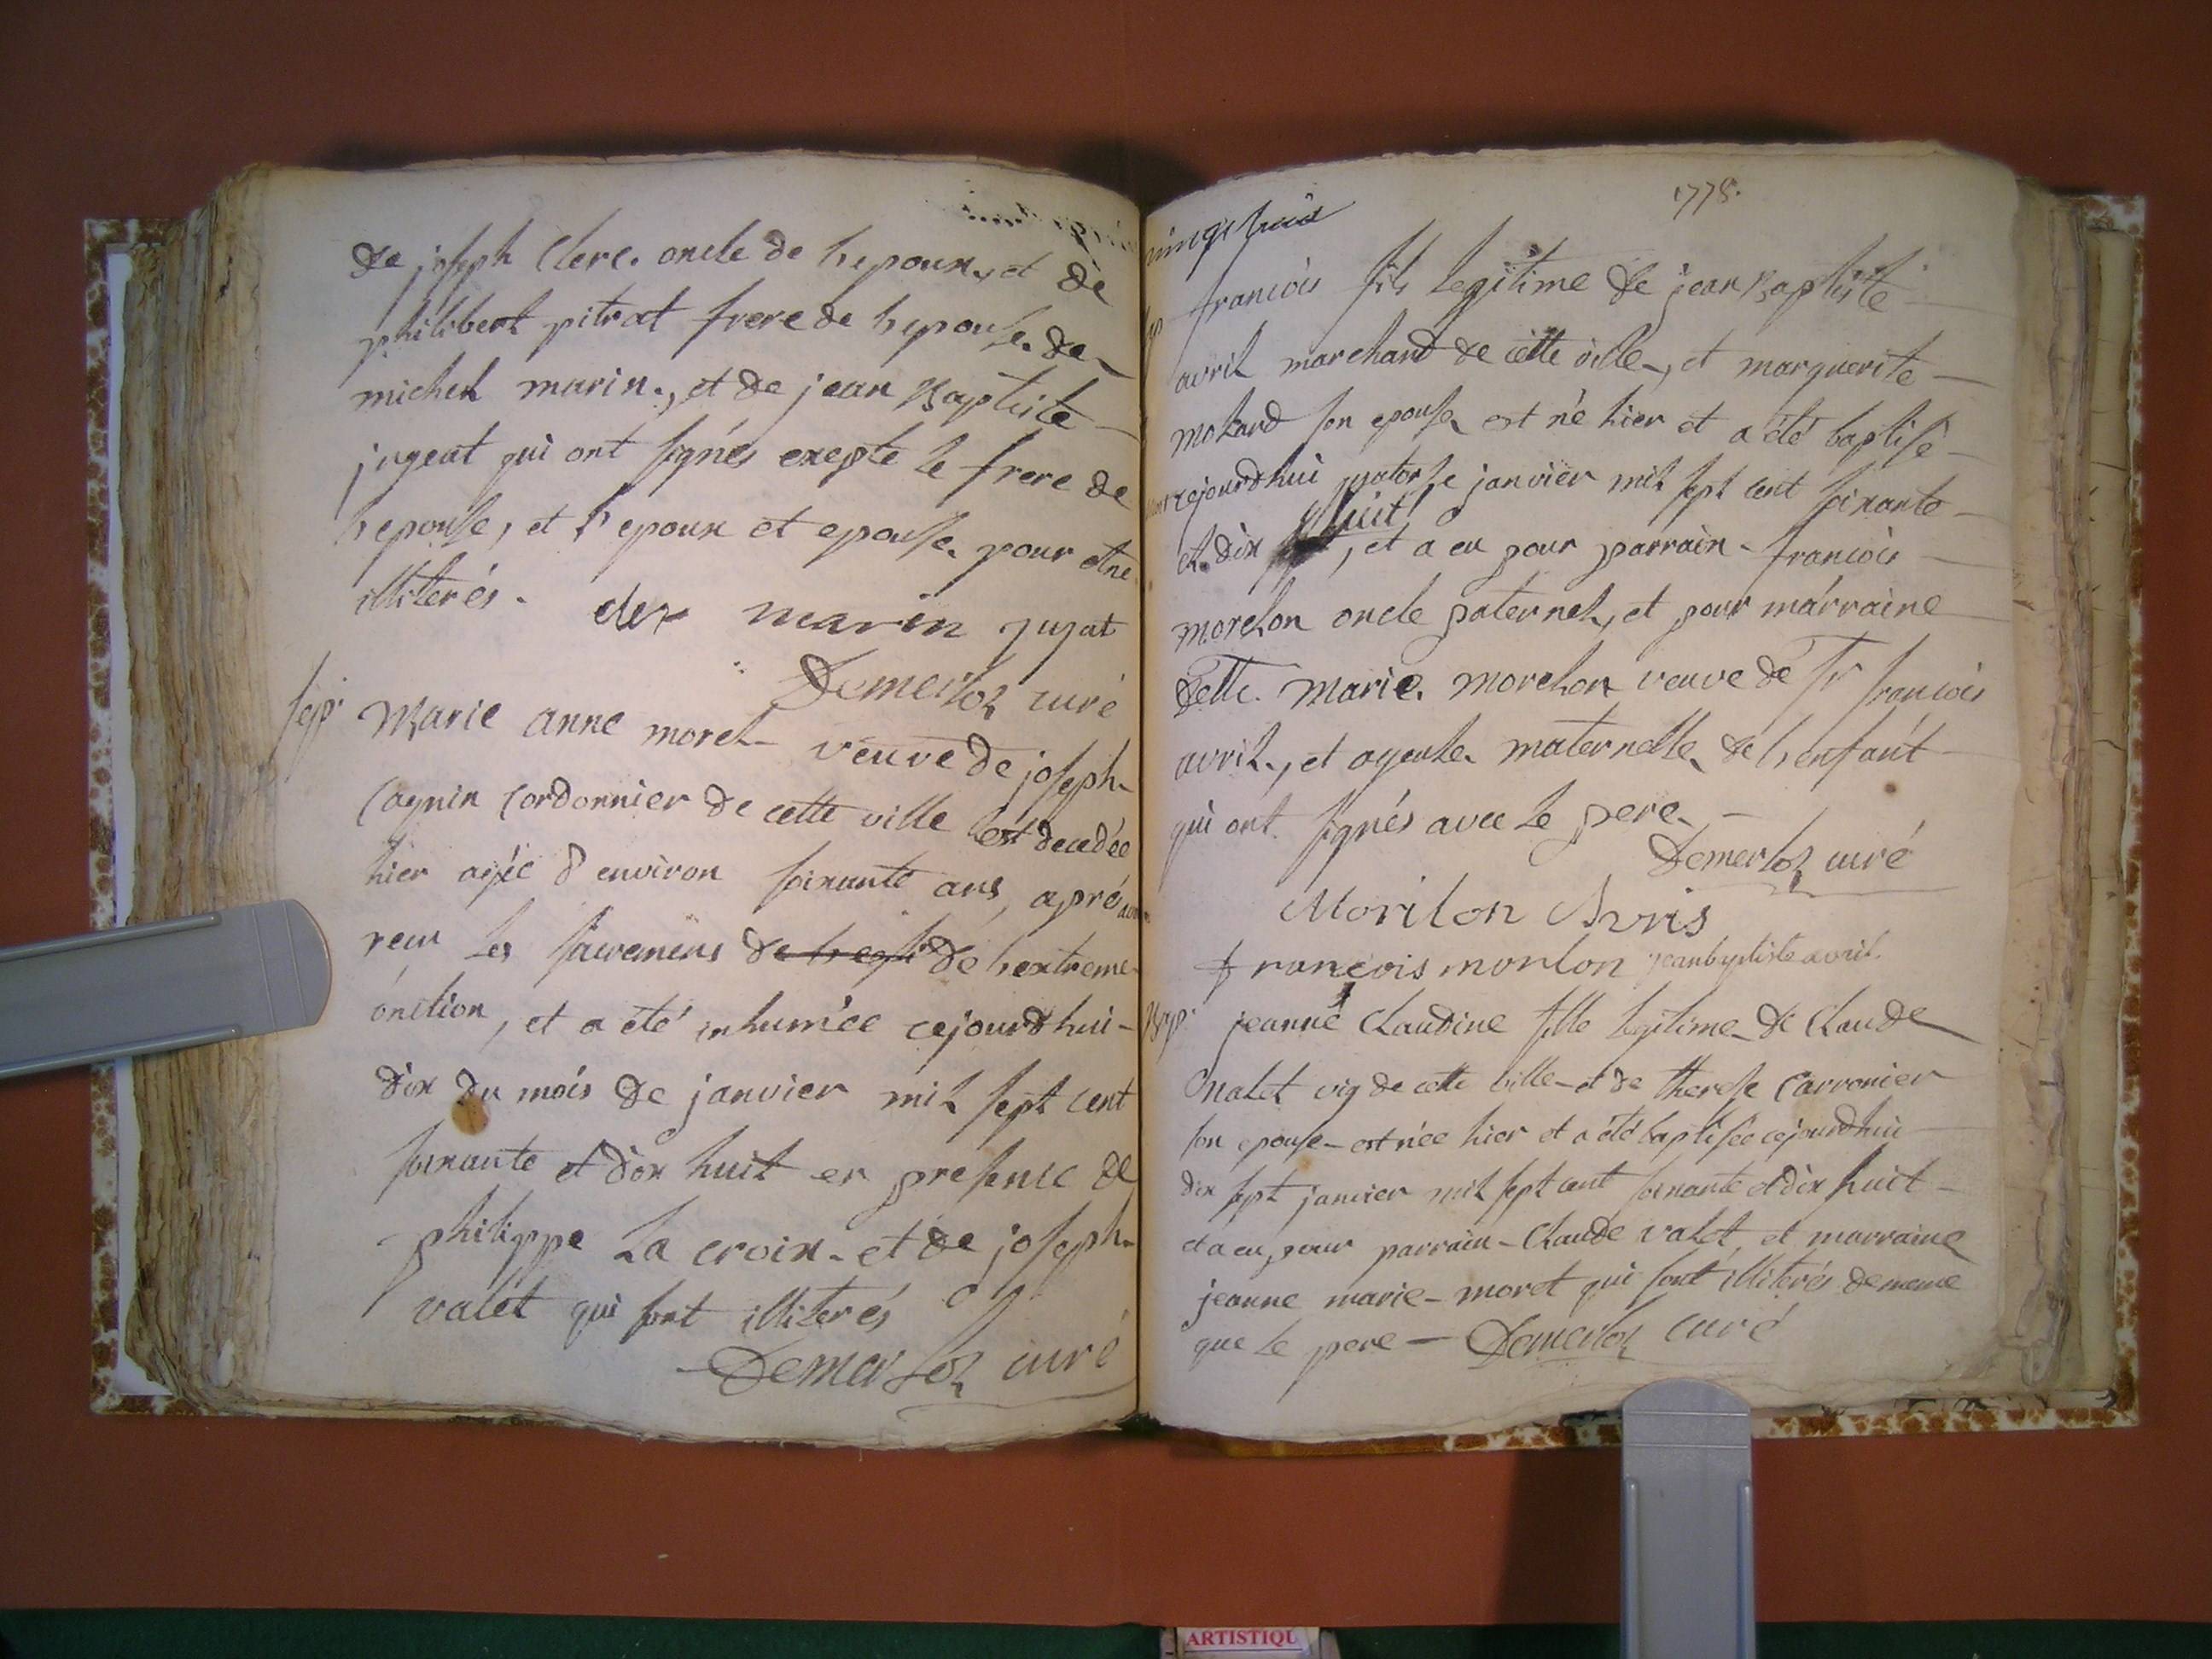 de joseph Clerc oncle de l'epoux, et de
philibert pitrat frere de l'epouse, de
michel marin, et de jean Baptiste
jugeat qui ont signés exepte le frere de
l'epouse, et l'epoux et epouse pour etre
illiterés.
clerc marin jujat
Demerloz curé
sep.
Marie anne morel veuve de joseph
Cagnin Cordonnier de cette ville est decedée
hier agée d'environ soixante ans, apré avoir
recu les sacremens de l'extreme
onction, et a été inhumée cejourdhui
dix du mois de janvier mil sept cent
soixante et dix huit en presence de
philippe La croix et de joseph
valet qui sont illiterés
Demerloz curé
1778.
vingt huit
francois fils legitime de jean Baptiste
avril marchand de cette ville, et marguerite
son epouse est né hier et a été baptisé
cejourdhui quatorse janvier mil sept cent soixante
et dix huit, et a eu pour parrain francois
morelon oncle paternel, et pour marraine
delle. Marie morelon veuve de sr francois
avril, et ayeule maternelle de l'enfant
qui ont signés avec le pere
Demerloz curé
Morilon Avris
francois morilon jean baptiste avril
Bap. jeanne Claudine fille legitime de Claude
valet vig de cette ville et de therese Carronier
son epouse est née hier et a été baptisée cejourdhui
dix sept janvier mil sept cent soixante et dix huit
et a eu pour parrain Claude valet, et marraine
jeanne marie moret qui sont illiterés de meme
que le pere Demerloz curé
ARTISTIQU